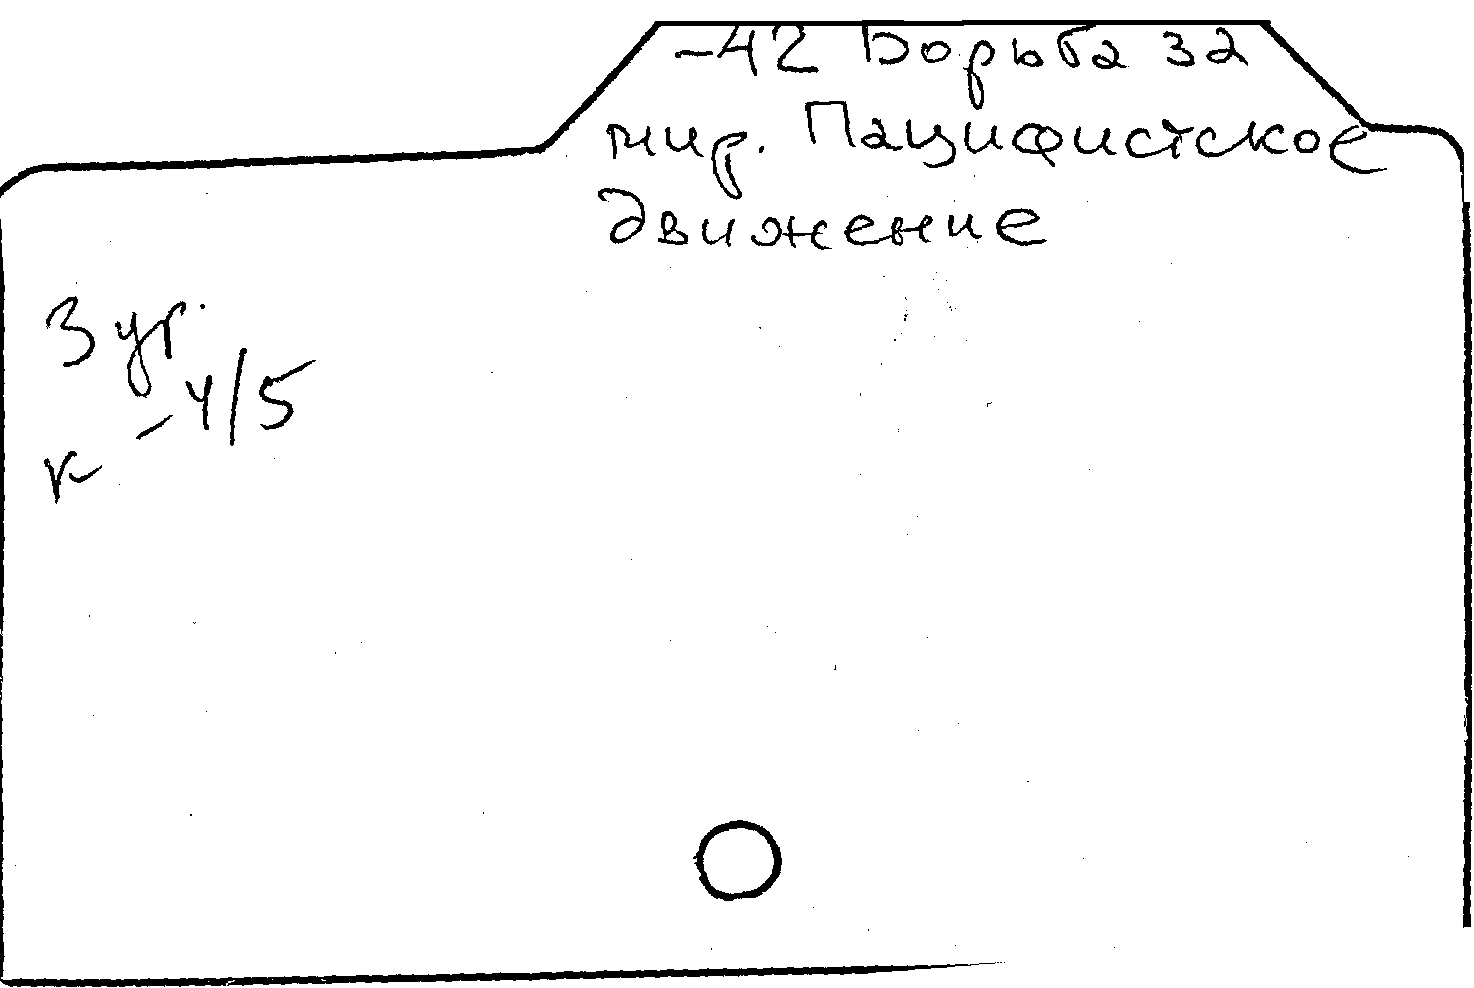 -42 Борьба за
мир. Пацифистское
движение
3 ур.
-4/5
к